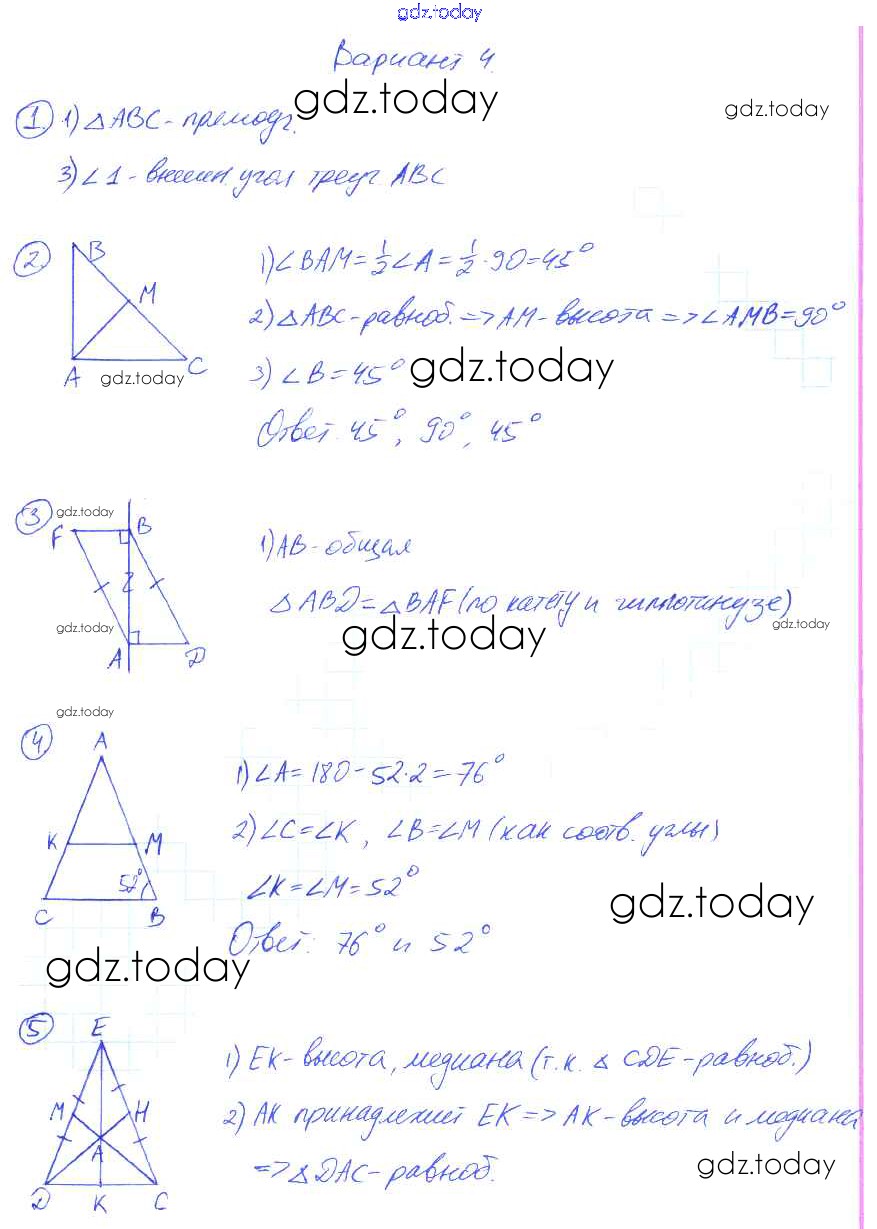 gdz.today
Вариант 4.
gdz.today
gdz.today
1. 1) △ABC - прямоуг.
3) ∠1 - внешн. угол треуг. ABC
2. B M A C
gdz.today
1) ∠BAM = 1/2 ∠A = 1/2 · 90 = 45°
2) △ABC - равноб. => AM - высота => ∠AMB = 90°
3) ∠B = 45°
gdz.today
Ответ. 45°, 90°, 45°
3 gdz.today
F B A D
gdz.today
1) AB - общая
△ABD = △BAF (по катету и гиппотинузе)
gdz.today
gdz.today
gdz.today
4. A K M C B 52°
1) ∠A = 180 - 52·2 = 76°
2) ∠C = ∠K, ∠B = ∠M (как соотв. углы)
∠K = ∠M = 52°
gdz.today
Ответ: 76° и 52°
gdz.today
5 E M H A D K C
1) EK - высота, медиана (т.к. △ CDE - равноб.)
2) AK принадлежит EK => AK - высота и медиана
=> △DAC - равноб.
gdz.today